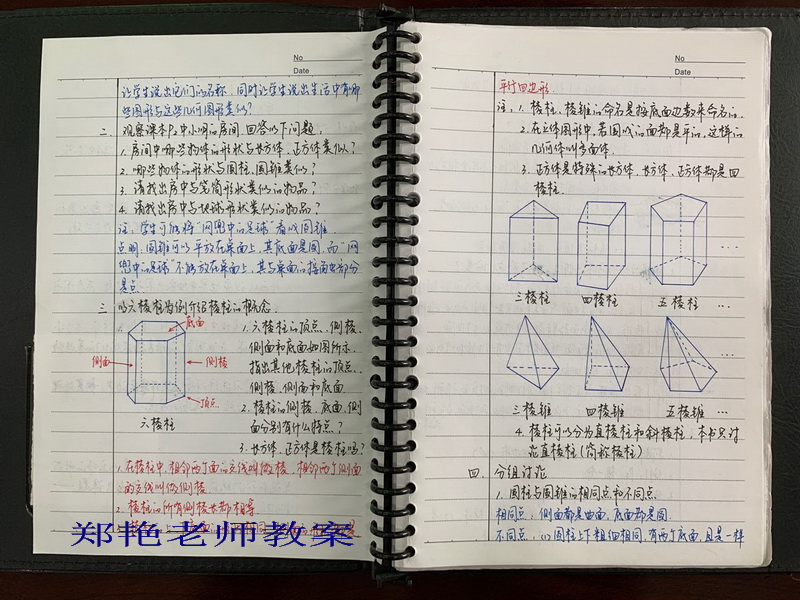 No
Date
让学生说出它们的名称，同时让学生说出生活中有哪
些图形与这些几何图形类似？
二、观察课本P2中小明的房间，回答以下问题：
1. 房间中哪些物体的形状与长方体、正方体类似？
2. 哪些物体的形状与圆柱、圆锥类似？
3. 请找出房中与笔筒形状类似的物品？
4. 请找出房中与地球形状类似的物品？
注：学生可能将“网兜中的足球”看成圆锥
说明：圆锥可以平放在桌面上，其底面是圆，而“网
兜中的足球”不能放在桌面上，其与桌面的接面也部分
是点
三、以六棱柱为例介绍棱柱的概念
底面
侧面
侧棱
顶点
六棱柱
1. 六棱柱的顶点、侧棱、
侧面和底面如图所示
指出其他棱柱的顶点、
侧棱、侧面和底面
2. 棱柱的侧棱、底面、侧
面分别有什么特点？
3. 长方体、正方体是棱柱吗？
1. 在棱柱中，相邻两个面的交线叫做棱，相邻两个侧面
的交线叫做侧棱
2. 棱柱的所有侧棱长都相等
郑艳老师教案
No
Date
平行四边形
注：1. 棱柱、棱锥的命名是按底面边数来命名的
2. 在立体图形中，若围成的面都是平的，这样的
几何体叫多面体
3. 正方体是特殊的长方体，长方体、正方体都是四
棱柱
三棱柱 四棱柱 五棱柱 …
三棱锥 四棱锥 五棱锥 …
4. 棱柱可以分为直棱柱和斜棱柱，本书只讨
论直棱柱（简称棱柱）
四、分组讨论
1. 圆柱与圆锥的相同点和不同点
相同点：侧面都是曲面，底面都是圆
不同点：(1) 圆柱上下粗细相同，有两个底面，且是一样